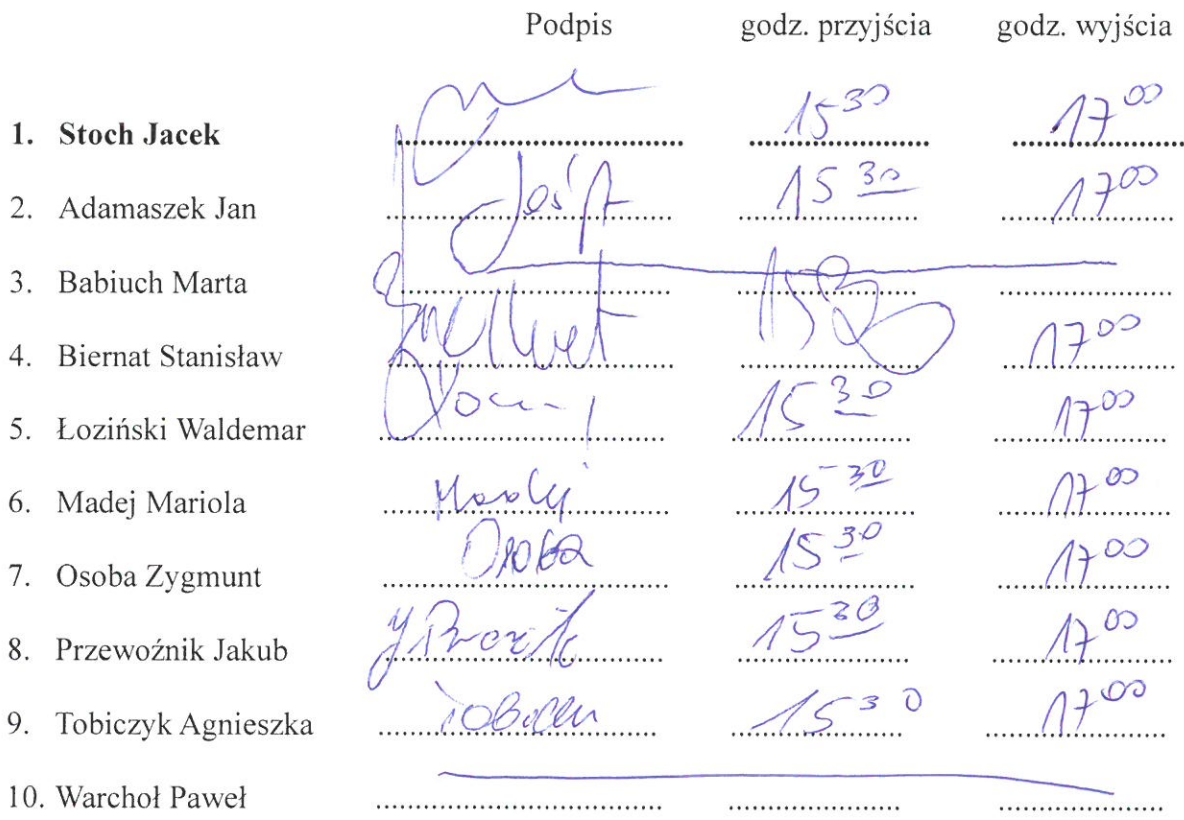 Podpis godz. przyjścia godz. wyjścia
1. Stoch Jacek 15 30 17 00
2. Adamaszek Jan 15 30 17 00
3. Babiuch Marta
4. Biernat Stanisław 15 17 00
5. Łoziński Waldemar 15 30 17 00
6. Madej Mariola Madej 15 30 17 00
7. Osoba Zygmunt Osoba 15 30 17 00
8. Przewoźnik Jakub 15 30 17 00
9. Tobiczyk Agnieszka 15 30 17 00
10. Warchoł Paweł